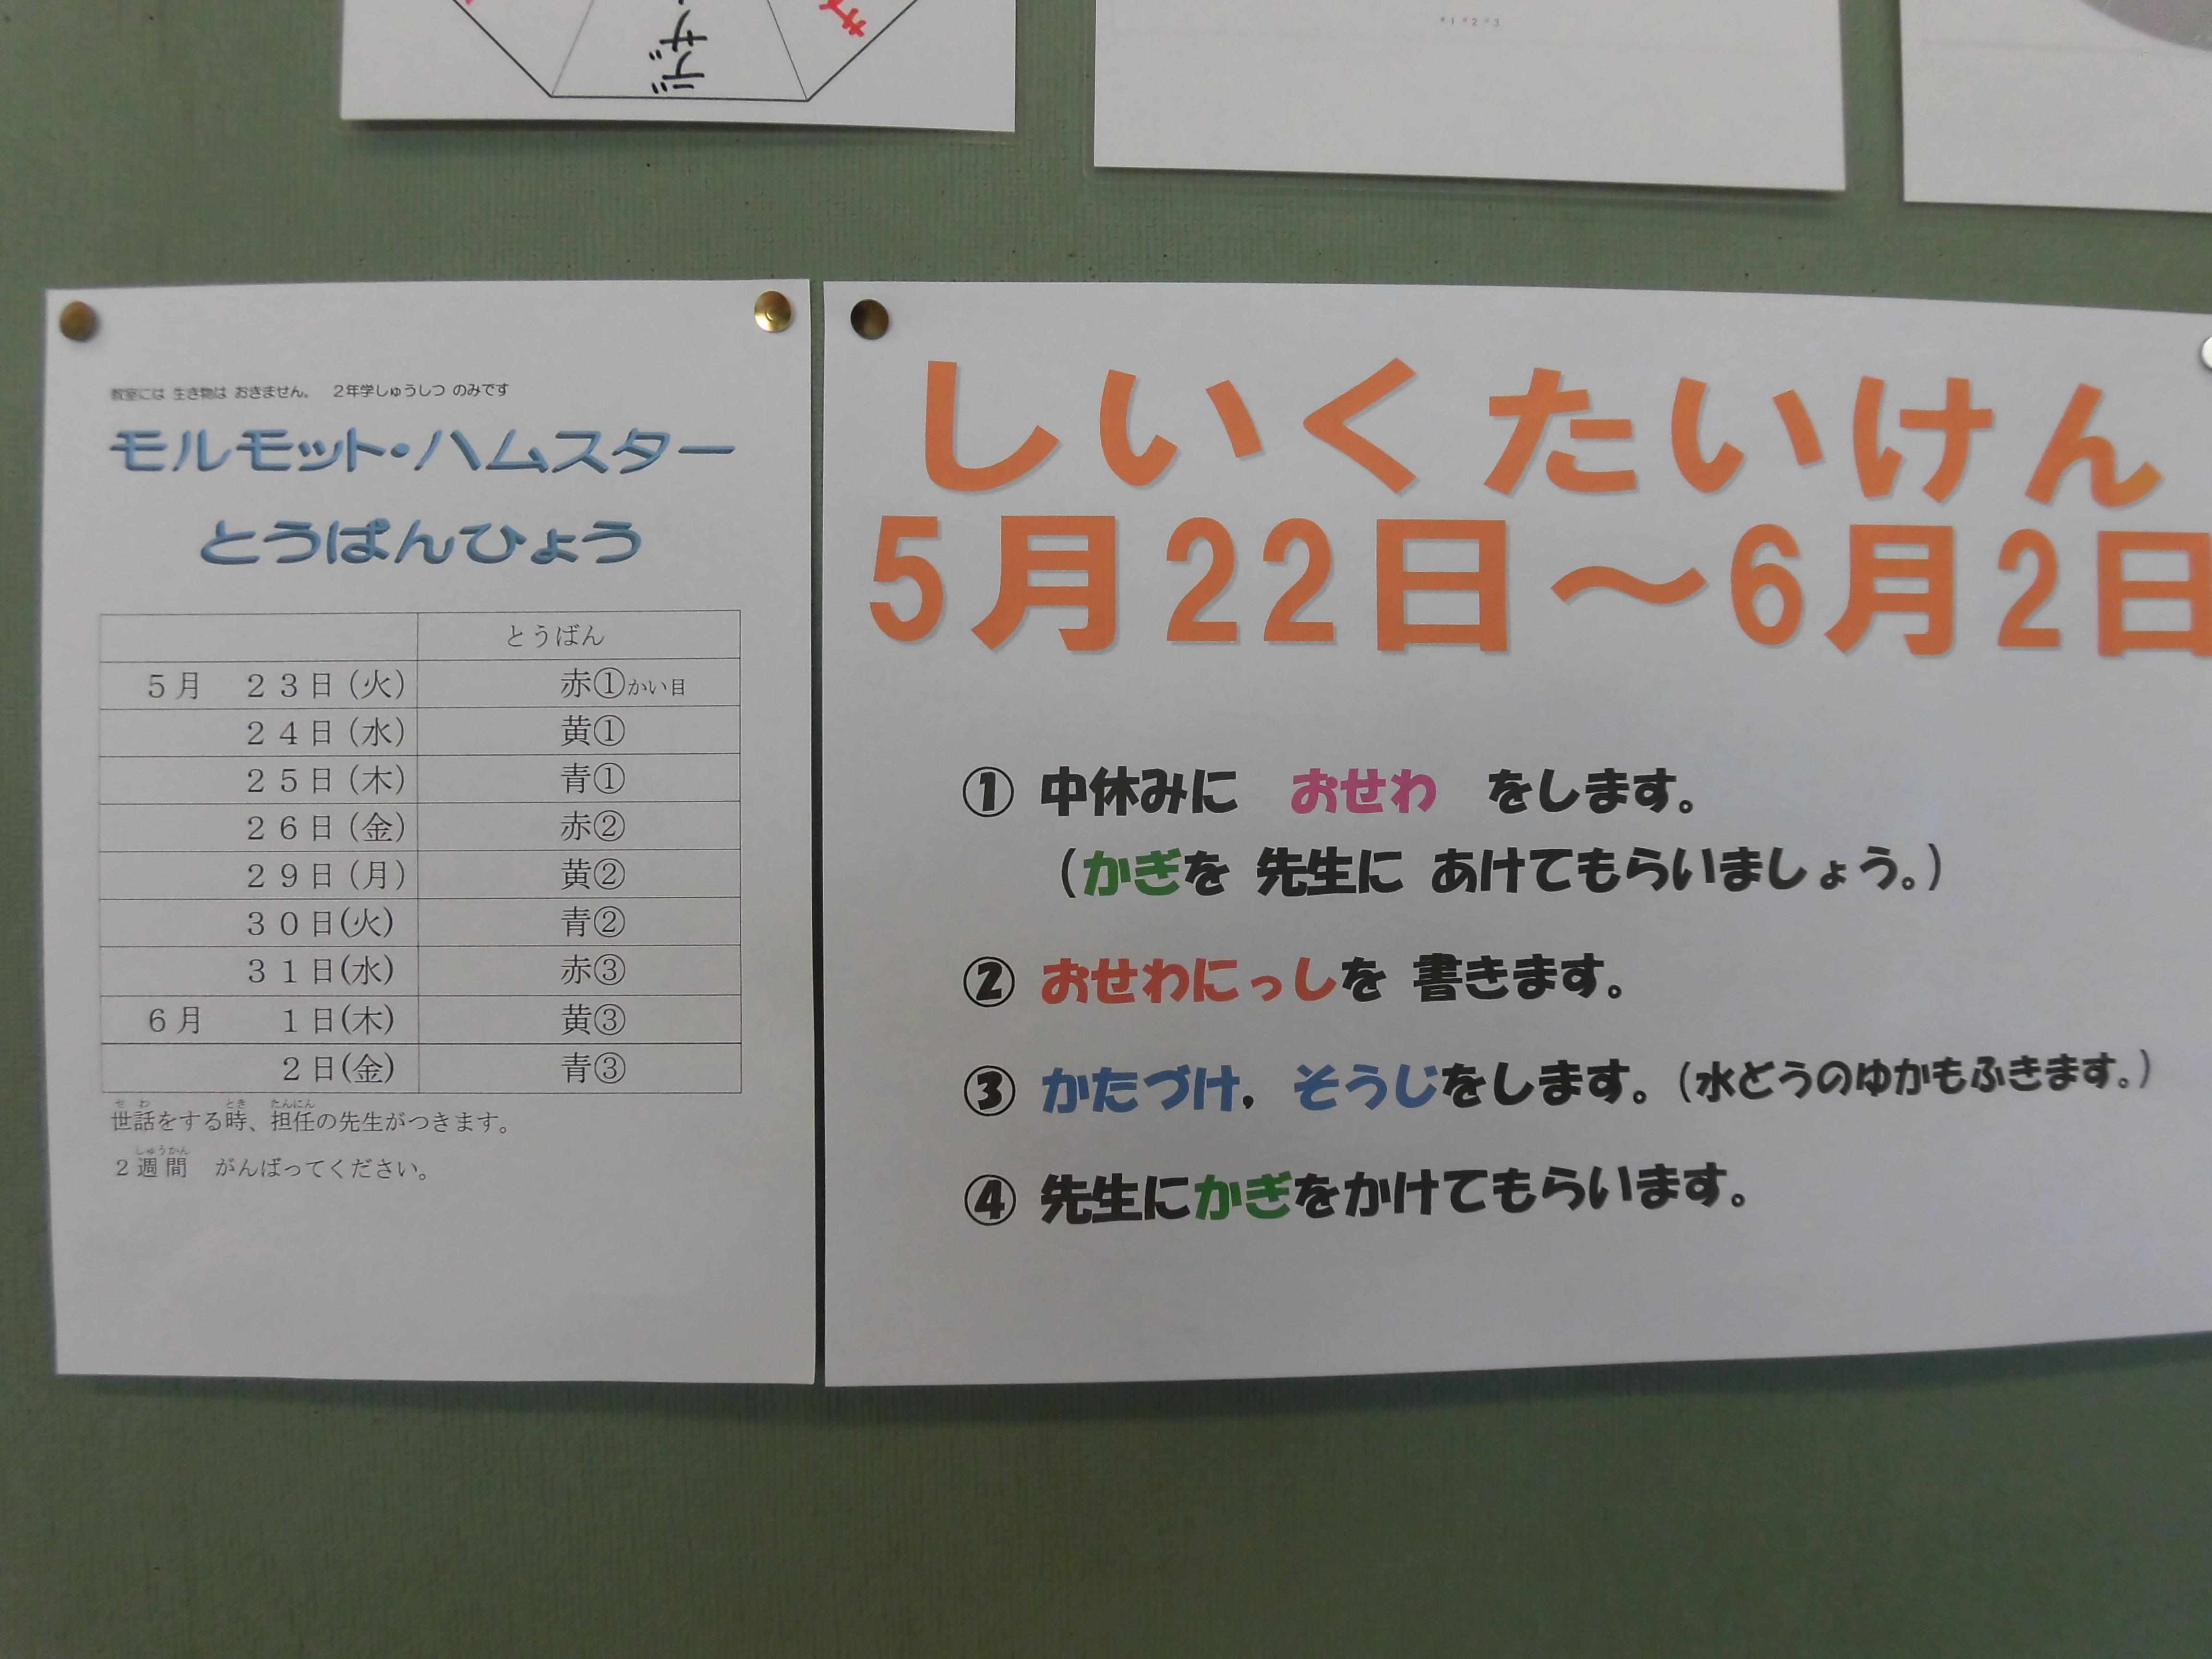 デザ
*1 *2 *3
教室には 生き物は おきません。 2年学しゅうしつ のみです
モルモット・ハムスター
とうばんひょう
とうばん
5月 23日(火) 赤①かい目
24日(水) 黄①
25日(木) 青①
26日(金) 赤②
29日(月) 黄②
30日(火) 青②
31日(水) 赤③
6月 1日(木) 黄③
2日(金) 青③
せわ とき たんにん
世話をする時、担任の先生がつきます。
しゅうかん
2週間 がんばってください。
しいくたいけん
5月22日～6月2日
① 中休みに おせわ をします。
(かぎを 先生に あけてもらいましょう。)
② おせわにっしを 書きます。
③ かたづけ，そうじをします。(水どうのゆかもふきます。)
④ 先生にかぎをかけてもらいます。